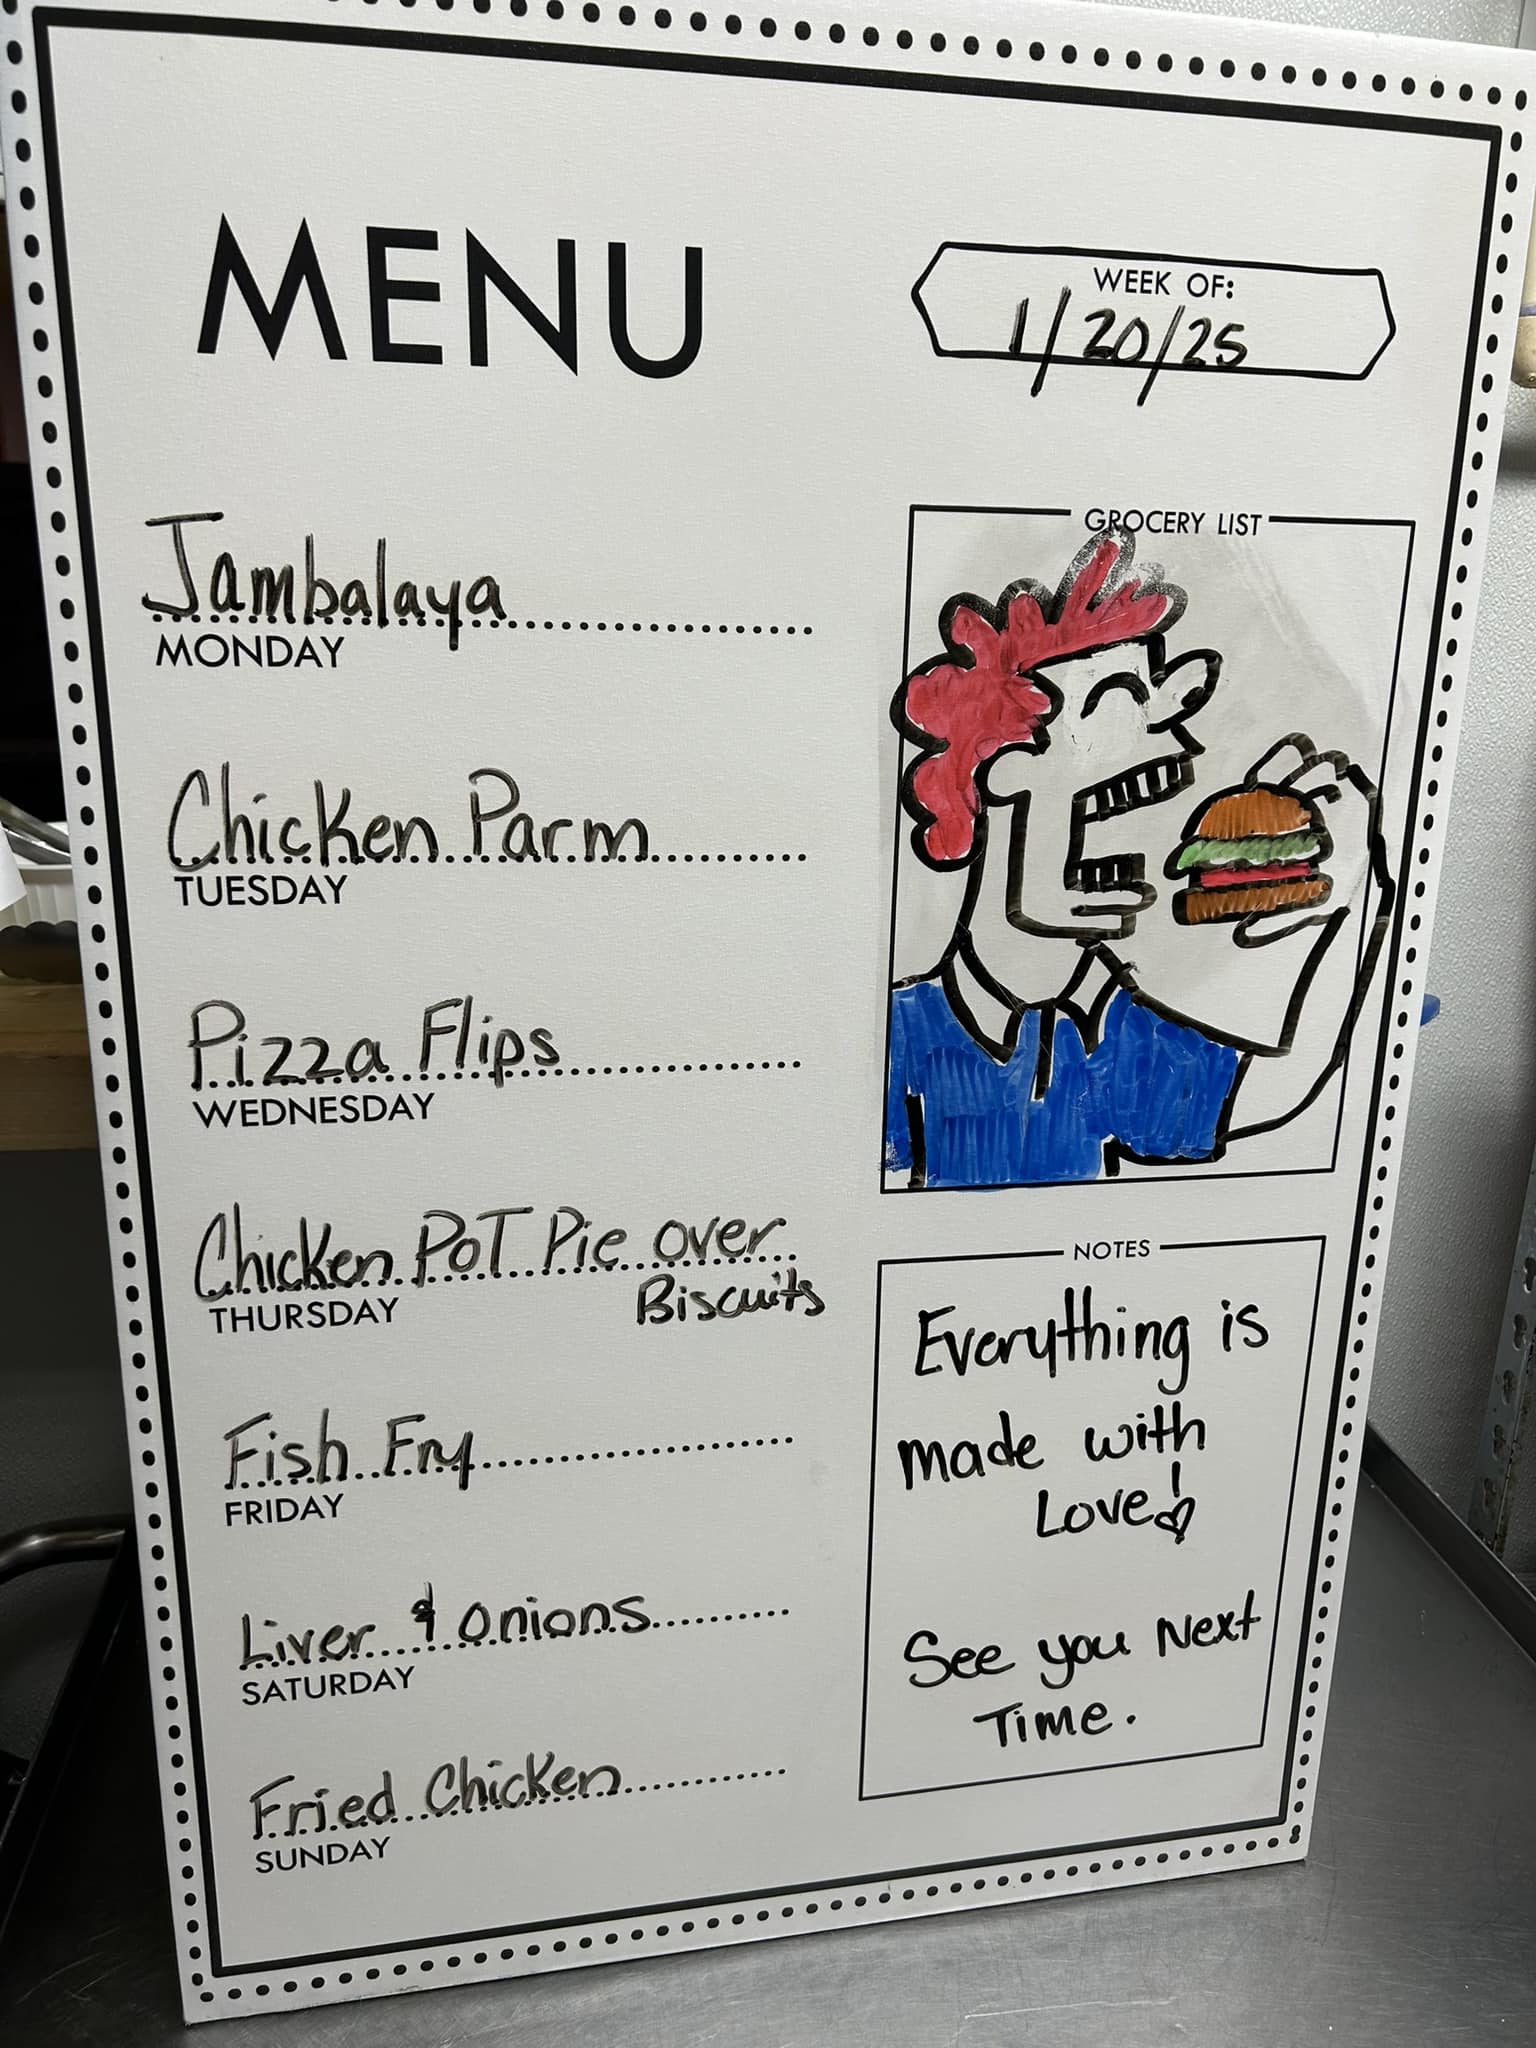 MENU
WEEK OF:
1/20/25
Jambalaya
MONDAY
Chicken Parm
TUESDAY
Pizza Flips
WEDNESDAY
Chicken Pot Pie over
Biscuits
THURSDAY
Fish Fry
FRIDAY
Liver & onions
SATURDAY
Fried Chicken
SUNDAY
GROCERY LIST
NOTES
Everything is
made with
Love!
See you Next
Time.